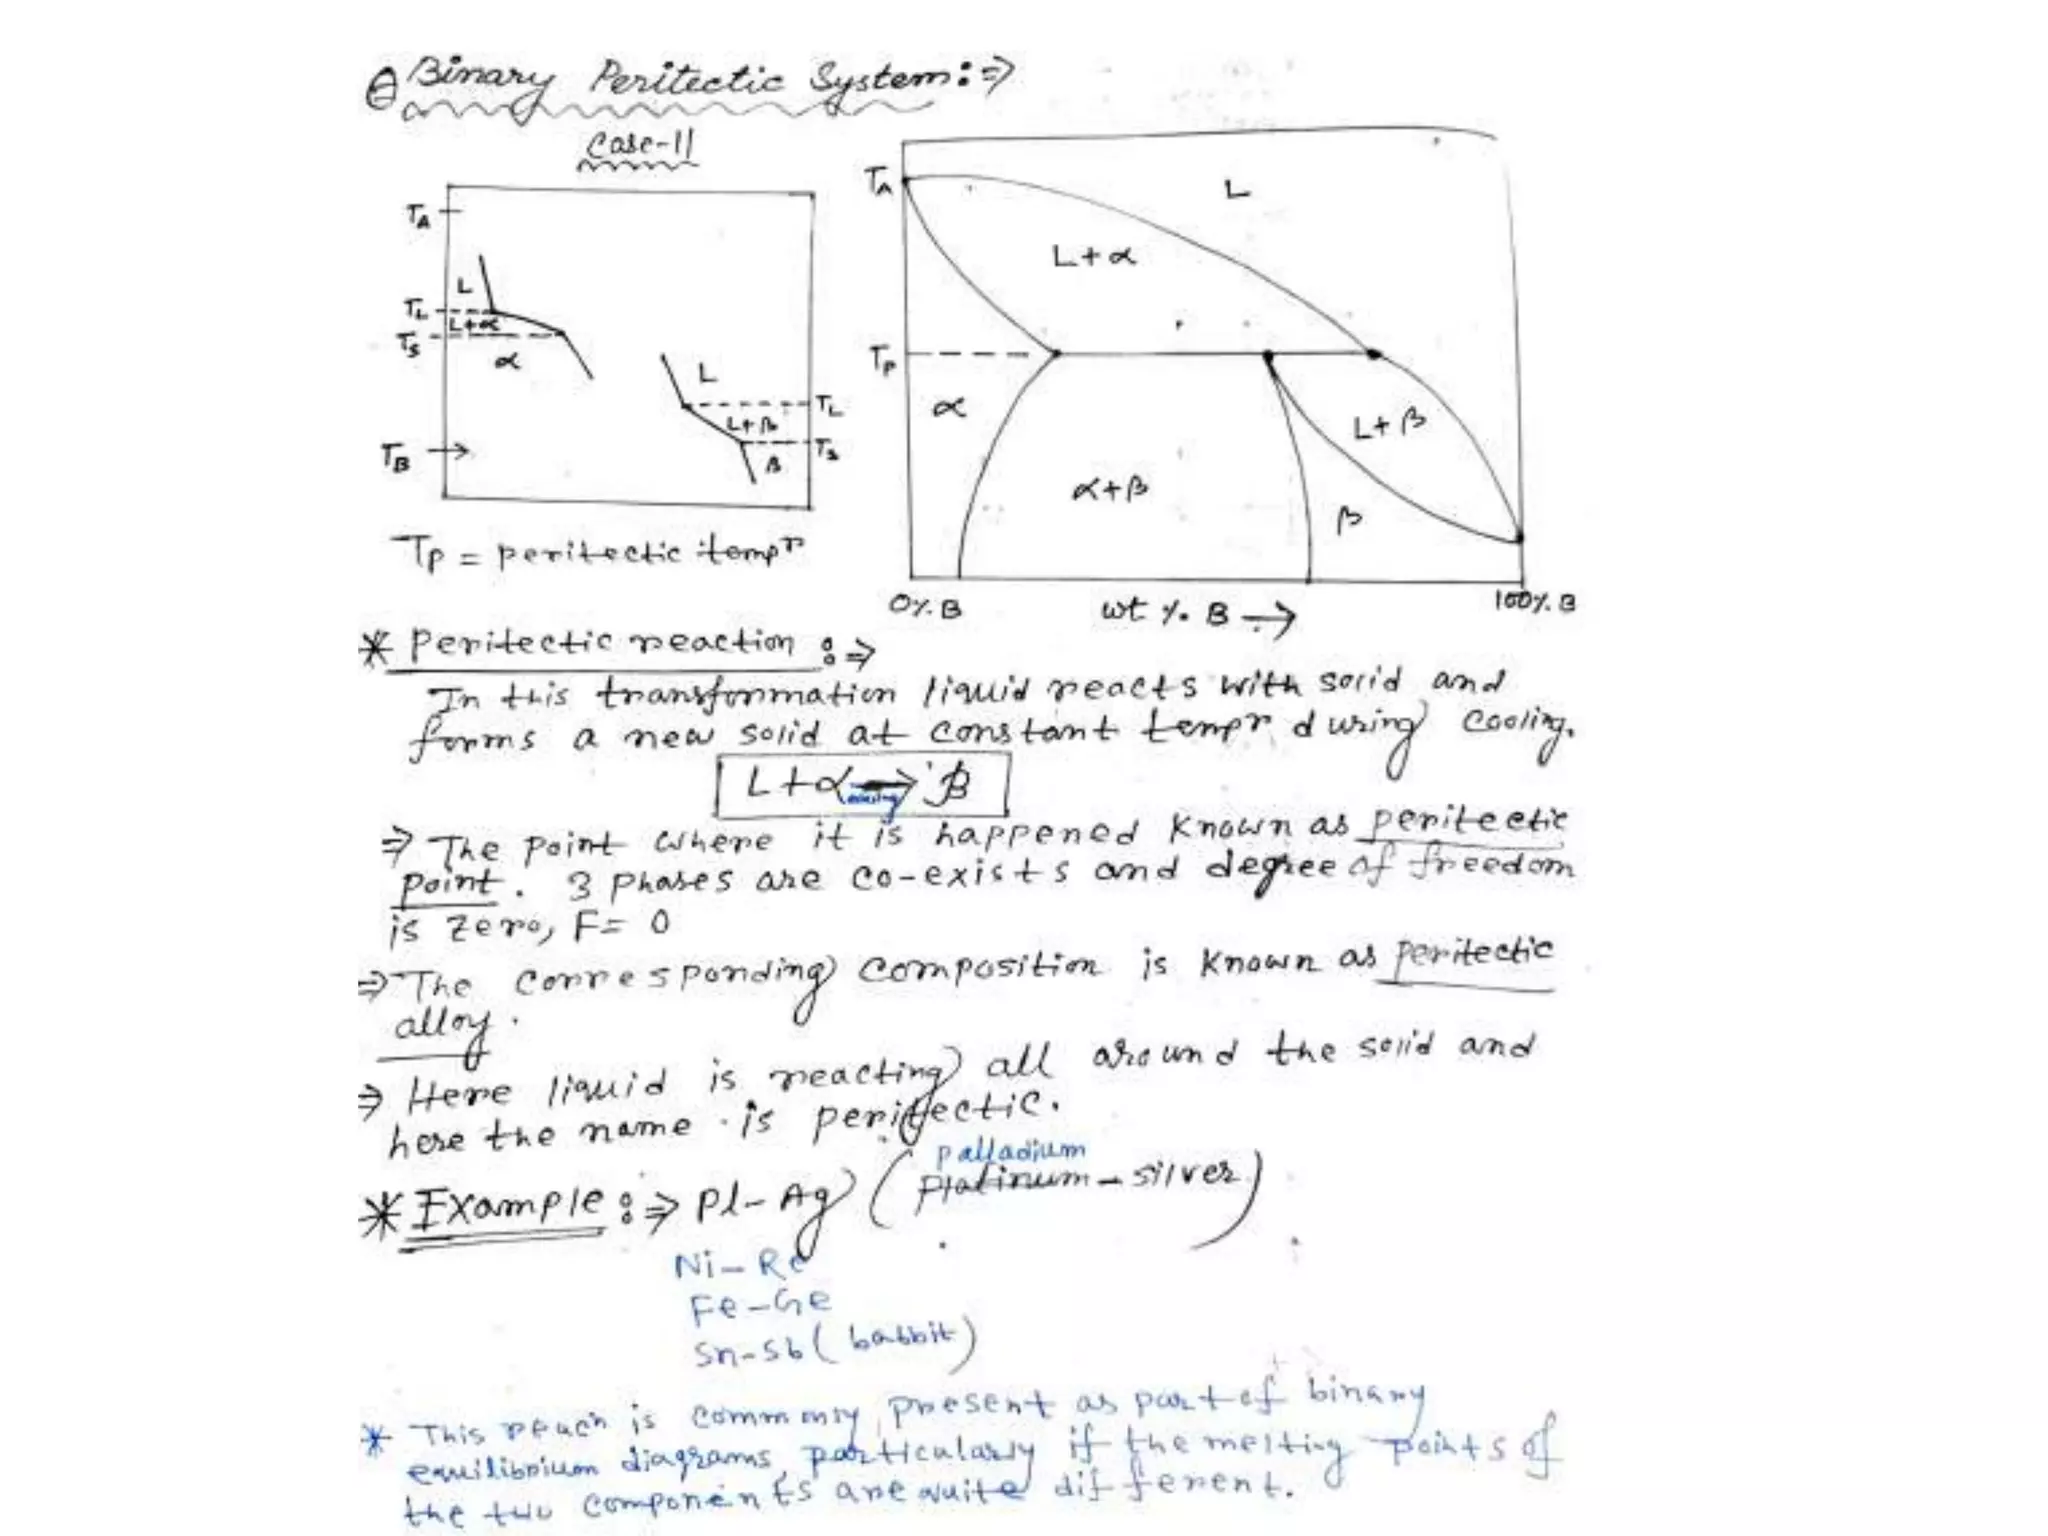 ⊖ Binary Peritectic System :⇒
Case-II
TA
L
TL
L+α
TS
α
L
TL
L+β
TS
β
TB
TA
L
L+α
TP
α
L+β
α+β
β
0% B
wt % B →
100% B
TP = peritectic tempr
* Peritectic reaction :⇒
In this transformation liquid reacts with solid and
forms a new solid at constant tempr during cooling.
L + α → β
cooling
⇒ The point where it is happened known as peritectic
point. 3 phases are co-exists and degree of freedom
is zero, F = 0
⇒ The corresponding composition is known as peritectic
alloy.
⇒ Here liquid is reacting all around the solid and
here the name is peritectic.
palladium
* Example :⇒ Pl-Ag (Platinum - silver)
Ni-Re
Fe-Ge
Sn-Sb (babbit)
* This reacn is commonly present as part of binary
equilibrium diagrams, particularly if the melting points of
the two components are quite different.